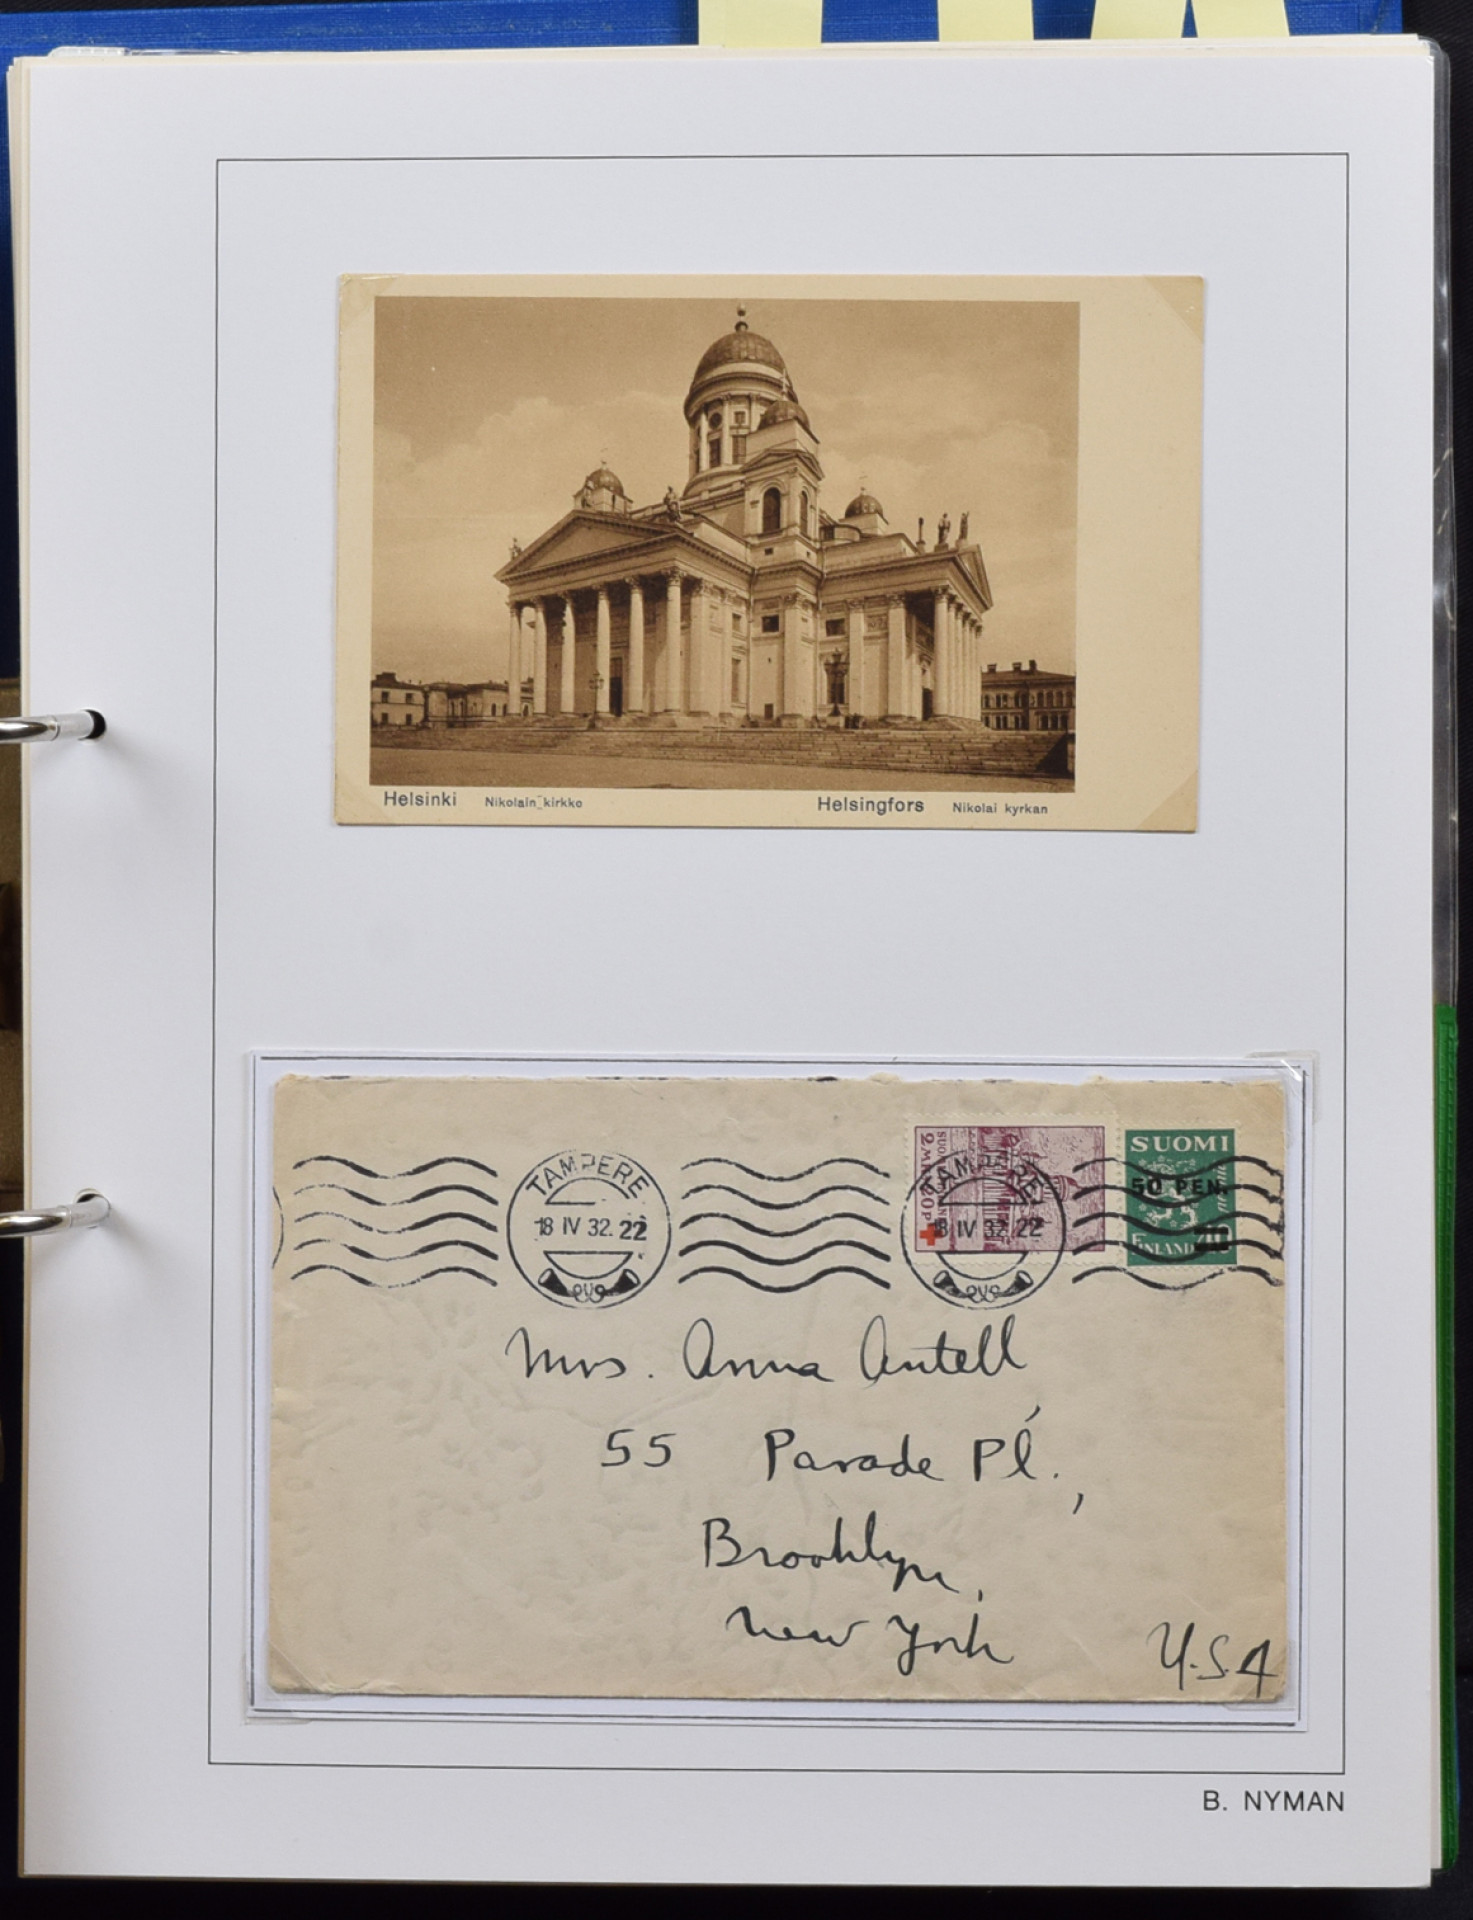 Helsinki Nikolain kirkko Helsingfors Nikolai kyrkan
TAMPERE
18 IV 32. 22
TAMPERE
18 IV 32. 22
2 MK 20 P
SUOMI
50 PEN.
FINLAND 40
Mrs. Anna Antell,
55 Parade Pl.,
Brooklyn,
New York
U.S.A
B. NYMAN